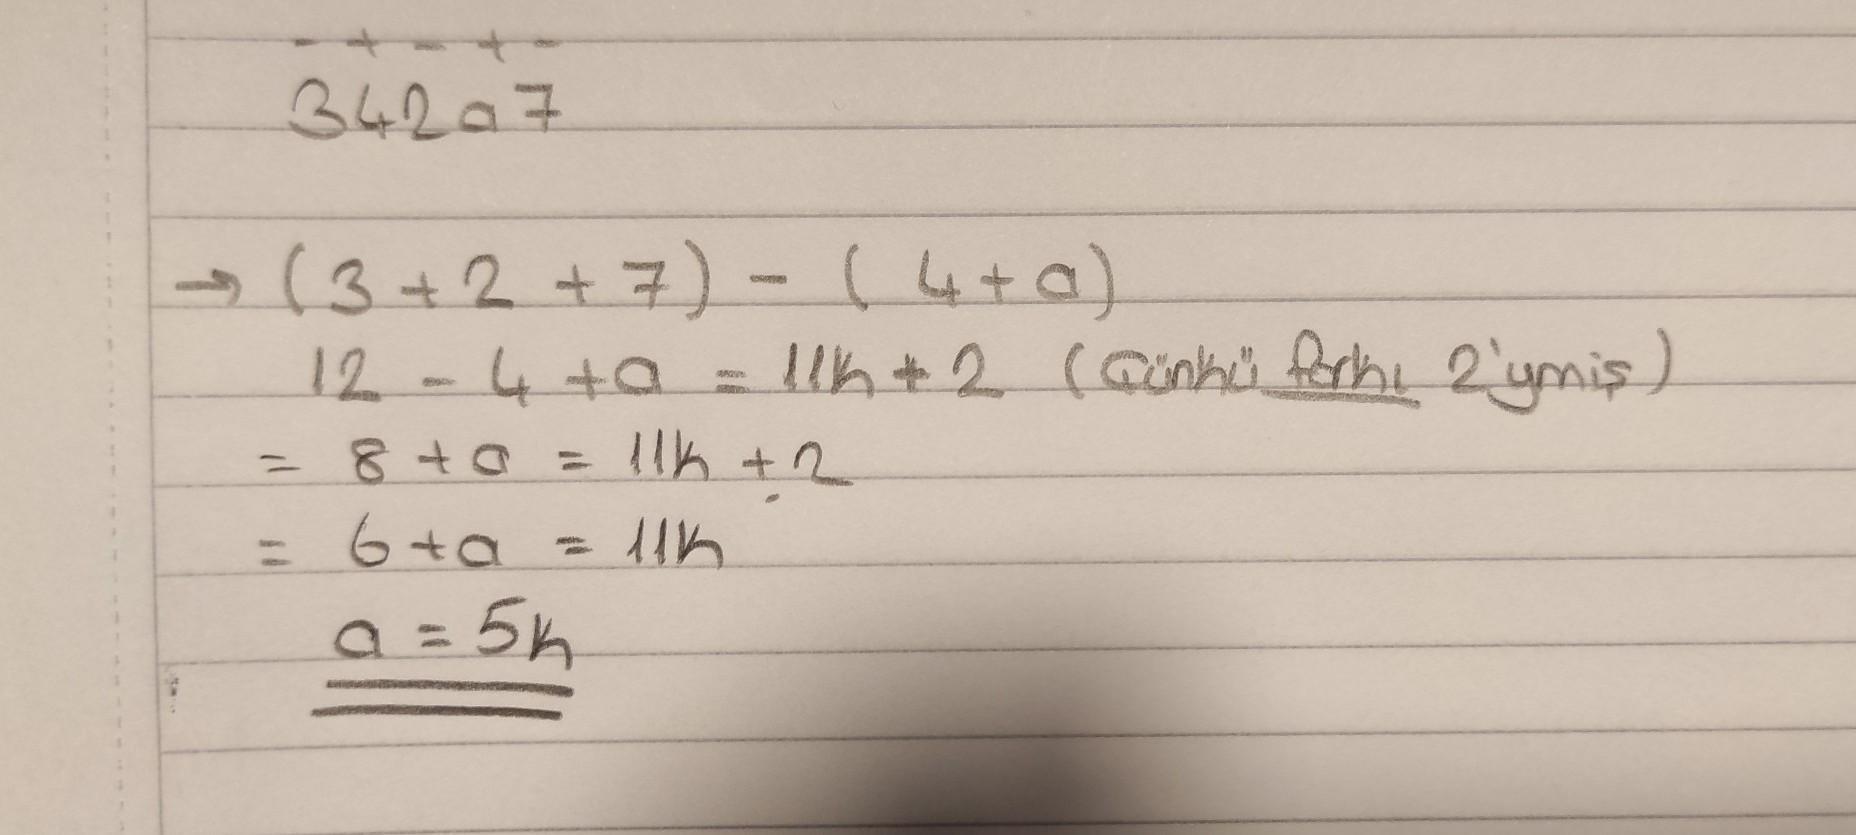 - + - + -
342a7
→ (3 + 2 + 7) - ( 4 + a)
12 - 4 + a = 11k + 2 (Çünkü farkı 2'ymiş)
= 8 + a = 11k + 2
= 6 + a = 11k
a = 5k